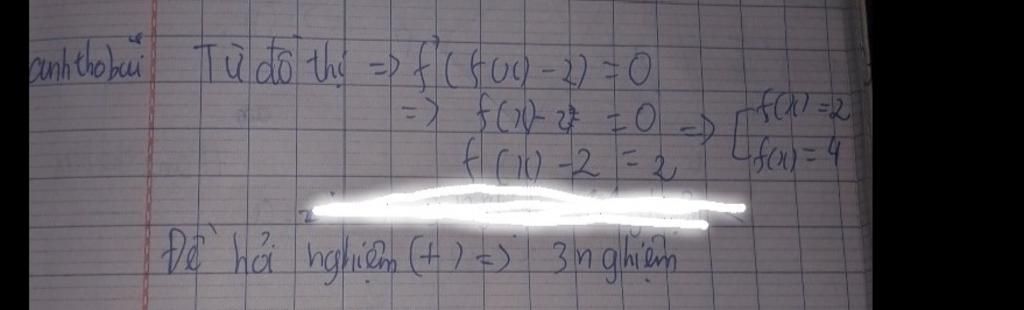 anhthobui Từ đồ thị => f'(f(x) - 2) = 0
=> f(x) - 2 = 0 => [ f(x) = 2
f(x) - 2 = 2 f(x) = 4
Đề hỏi nghiệm (+) => 3 nghiệm